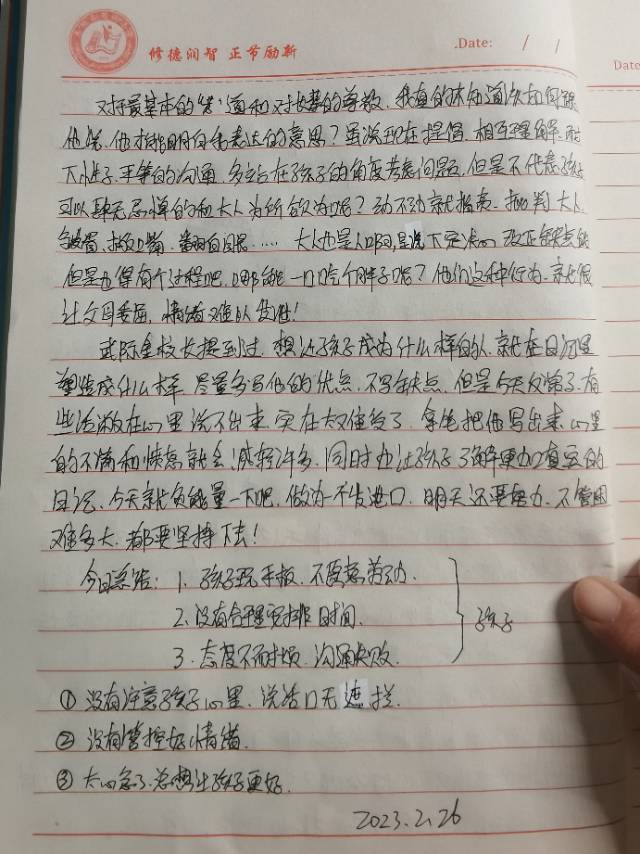 修德润智 正节励新
Date: / /
Date:
对于最基本的"孝"道和对长辈的尊敬,我真的不知道该如何跟
他说,他才能明白我表达的意思?虽说现在提倡,相互理解,蹲
下身子,平等的沟通,多站在孩子的角度考虑问题,但是不代表孩子
可以肆无忌惮的和大人为所欲为呢?动不动就指责,批判大人,
顶嘴,翻白眼…… 大人也是人啊,虽说下定决心 改正缺点
但是也得有个过程吧,哪能一口吃个胖子呢?他们这种行为,就很
让父母委屈,情绪难以发泄!
武际金校长提到过,想让孩子成为什么样的人,就在日记里
塑造成什么样,尽量多写他的优点,不写缺点,但是今天反常了,有
些话放在心里说不出来,实在太难受了,拿笔把他写出来,心里
的不满和愤怒就会减轻许多,同时也让孩子了解更加真实的
日记,今天就负能量一下吧,做为一个发泄口,明天还要努力,不管困
难多大,都要坚持下去!
今日总结:1. 孩子玩手板,不愿意劳动.
2.没有合理安排时间.
3.态度不耐烦,沟通失败.
孩子
① 没有注意孩子心里,说话口无遮拦.
② 没有管控好情绪.
③ 太心急了,总想让孩子更好.
2023.2.26